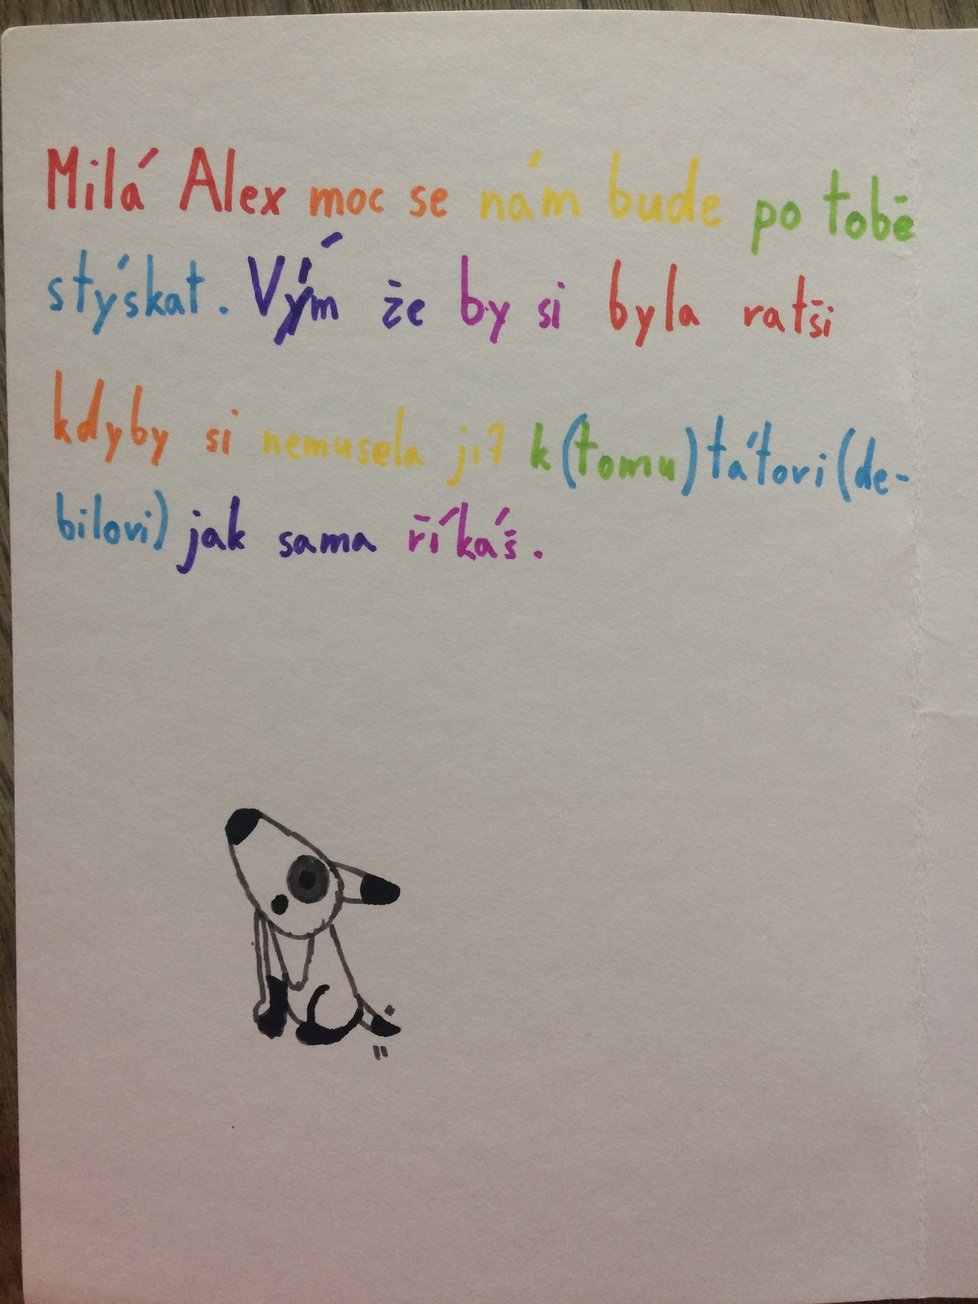 Milá Alex moc se nám bude po tobě
stýskat. Vým že by si byla ratši
kdyby si nemusela jít k (tomu) tátovi (de-
bilovi) jak sama říkáš.